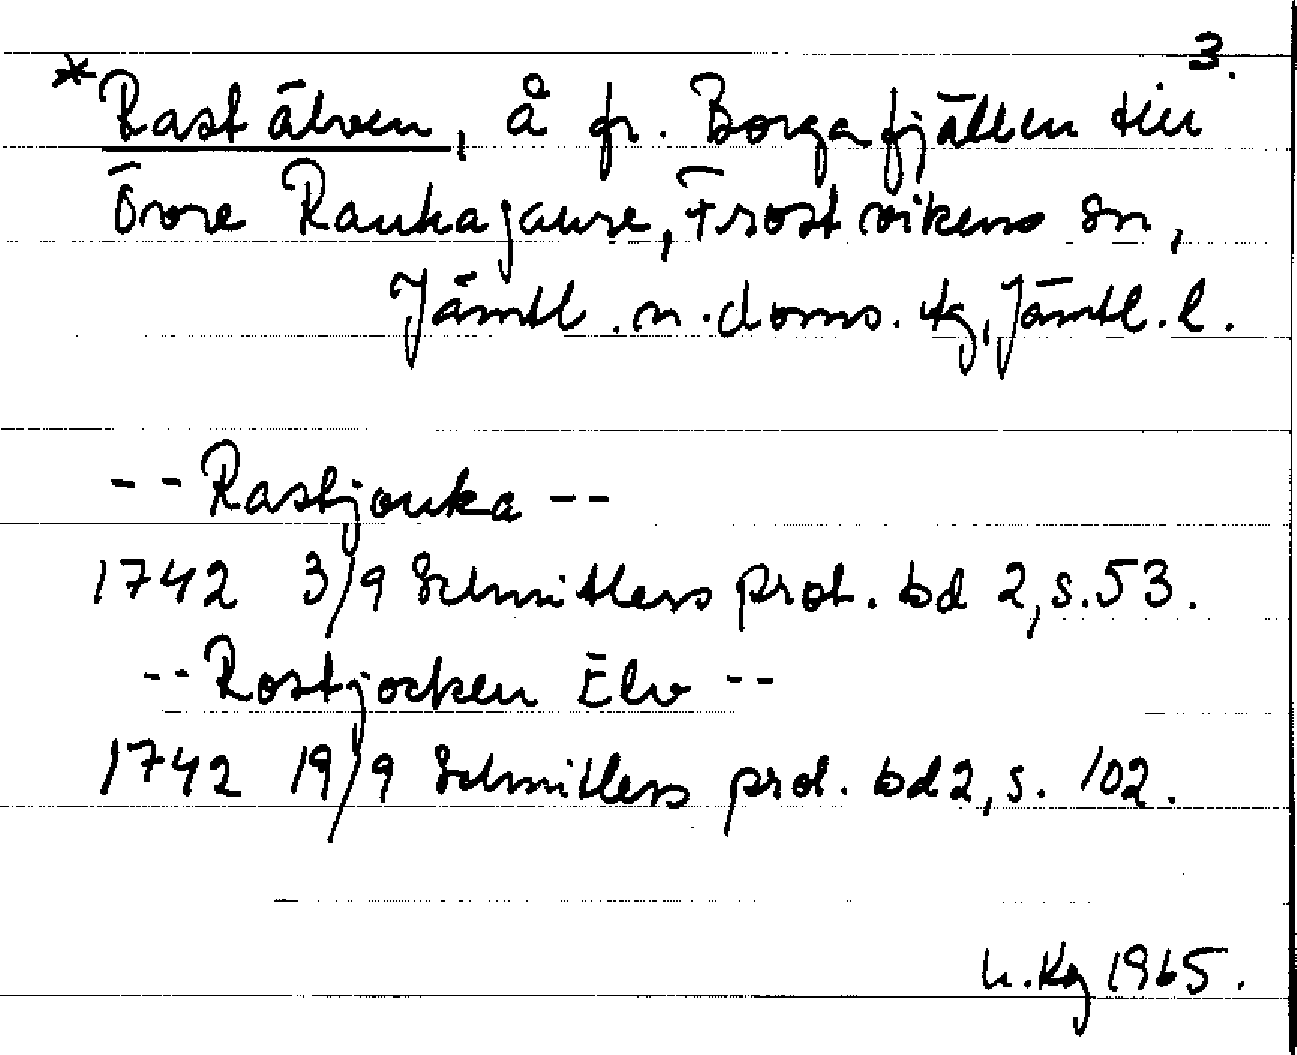 3.
*Rastälven, å fr. Borgafjällen till
Övre Raukajaure, Frostvikens sn,
Jämtl. n. doms. tg, Jämtl. l.
-- Rastjouka --
1742 3/9 Schnitlers prot. bd 2, s. 53.
-- Rostjocken Elv --
1742 19/9 Schnitlers prot. bd 2, s. 102.
U. Kg 1965.